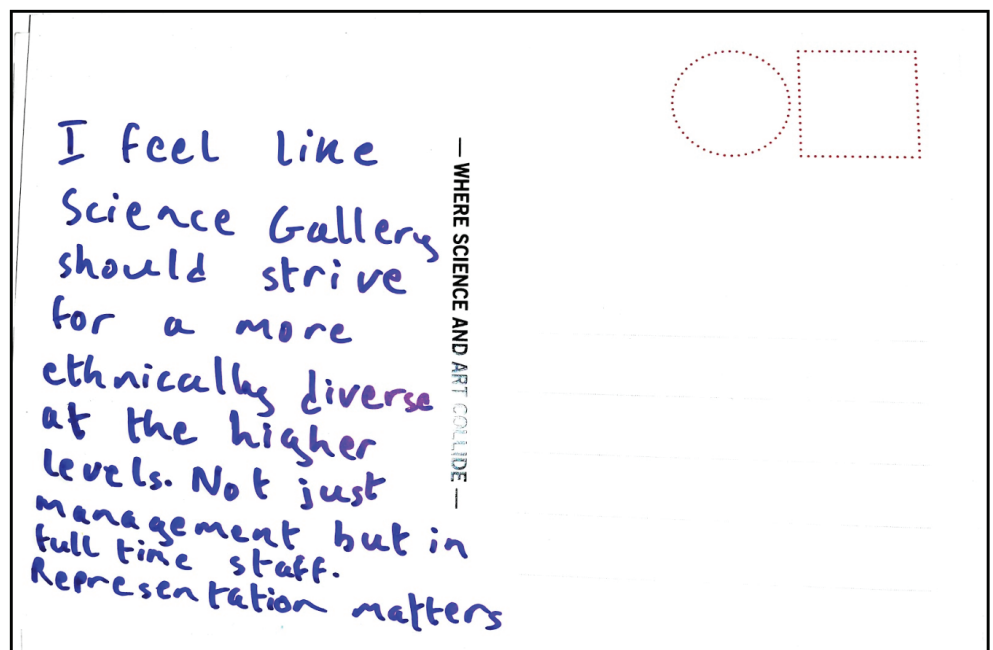 I feel like
Science Gallery
should strive
for a more
ethnically diverse
at the higher
levels. Not just
management but in
full time staff.
Representation matters
— WHERE SCIENCE AND ART COLLIDE —